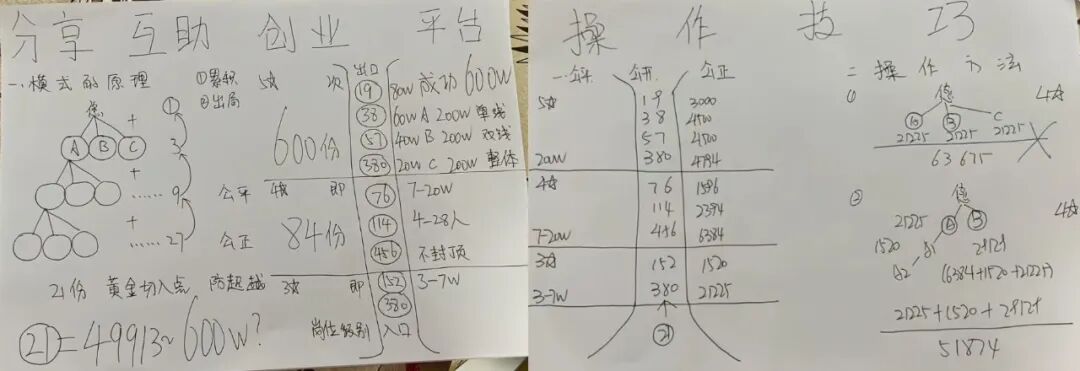 分享 互助 创业 平台
一、模式的原理
①累积
②出局
5☆ 次
您
A B C
+
①
3
+
…… 9
+
…… 27
公平
公正
600份
4☆ 即
84份
21份 黄金切入点 防超越 3☆ 即
㉑=49913~600W?
岗位级别
出口
19 80W 成功 600W
38 60W A 200W 单线
57 40W B 200W 双线
380 20W C 200W 整体
76 7-20W
114 4-28人
456 不封顶
152 3-7W
380
入口
操 作 技 巧
一、公平 公开 公正
5☆ 19 3000
38 4500
57 4500
20W 380 4794
4☆ 76 1596
114 2394
7-20W 456 6384
3☆ 152 1520
3-7W 380 21225
㉑
二 操作方法
① 您 4☆
A B C
21225 21225 21225
63675
② 您 4☆
21225 A B
1520 A1 29129
A2 (6384+1520+21225)
21225+1520+29129
51874